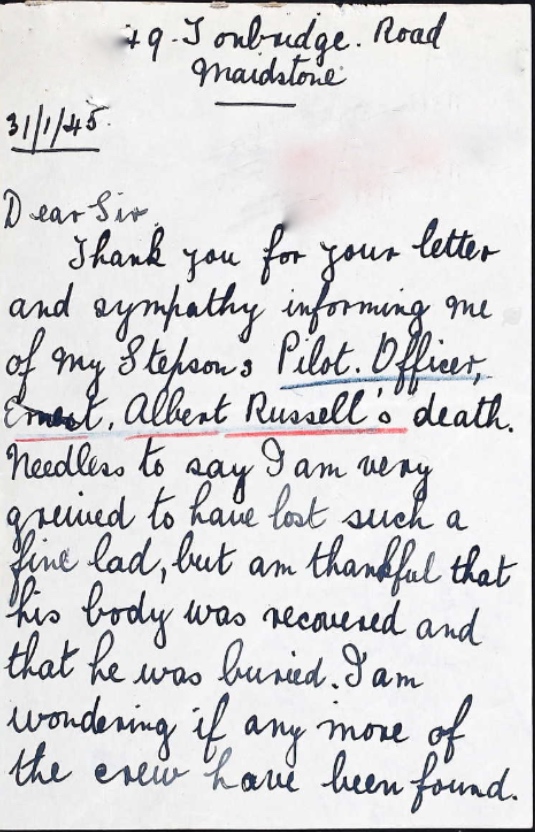 49. Tonbridge. Road
Maidstone
31/1/45.
Dear Sir.
Thank you for your letter
and sympathy informing me
of my Stepsons Pilot. Officer,
Ernest, Albert Russell's death.
Needless to say I am very
greived to have lost such a
fine lad, but am thankful that
his body was recovered and
that he was buried. I am
wondering if any more of
the crew have been found.